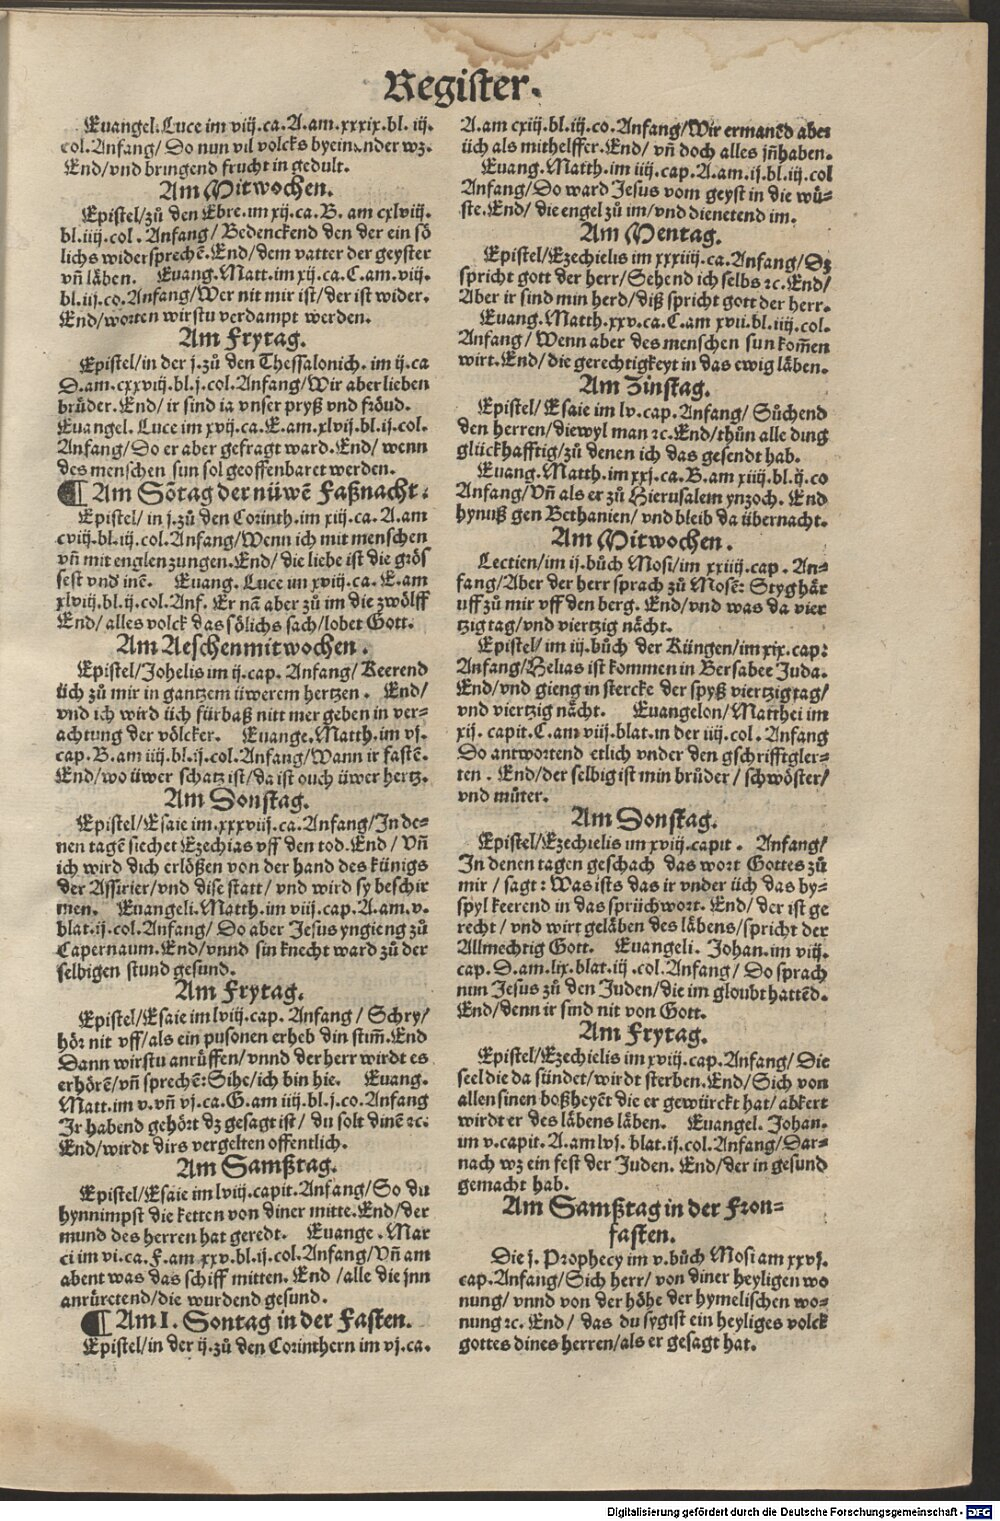 Register.
Euangel. Luce im viij.ca.A.am.xxxix.bl. iij.
col.Anfang/ Do nun vil volcks byeinander wz.
End/vnd bringend frucht in gedult.
Am Mitwochen.
Epistel/zů den Ebre.im xij.ca.B. am cxlviij.
bl.iiij.col. Anfang/ Bedenckend den der ein sö
lichs widersprechē.End/dem vatter der geyster
vñ läben. Euang.Matt.im xij.ca.C.am.viij.
bl.iij.co.Anfang/Wer nit mir ist/der ist wider.
End/worten wirstu verdampt werden.
Am Frytag.
Epistel/in der j.zů den Thessalonich. im ij.ca
D.am.cxxviij.bl.j.col.Anfang/Wir aber lieben
brüder.End/ ir sind ia vnser pryß vnd fröud.
Euangel. Luce im xvij.ca.E.am.xlvij.bl.ij.col.
Anfang/Do er aber gefragt ward.End/ wenn
des menschen sun sol geoffenbaret werden.
¶ Am Sōtag der nüwē Faßnacht.
Epistel/ in j.zů den Corinth.im xiij.ca.A.am
cviij.bl.iij.col.Anfang/Wenn ich mit menschen
vñ mit englen zungen.End/ die liebe ist die grös
sest vnd inē. Euang. Luce im xviij.ca.E.am
xlviij.bl.ij.col.Anf. Er nā aber zů im die zwölff
End/ alles volck das sölichs sach/lobet Gott.
Am Aeschenmitwochen.
Epistel/Johelis im ij.cap. Anfang/ Keerend
üch zů mir in gantzem üwerem hertzen. End/
vnd ich wird üch fürbaß nitt mer geben in ver-
achtung der völcker. Euange.Matth.im vj.
cap.B.am iiij.bl.ij.col.Anfang/Wann ir fastē.
End/wo üwer schatz ist/da ist ouch üwer hertz.
Am Donstag.
Epistel/Esaie im.xxxviij.ca.Anfang/In de-
nen tagē siechet Ezechias vff den tod.End/ Vñ
ich wird dich erlößen von der hand des künigs
der Assirier/vnd dise statt/ vnd wird sy beschir
men. Euangeli.Matth.im viij.cap.A.am.v.
blat.ij.col.Anfang/ Do aber Jesus yngieng zů
Capernaum.End/vnnd sin knecht ward zů der
selbigen stund gesund.
Am Frytag.
Epistel/Esaie im lviij.cap. Anfang / Schry/
hör nit vff/als ein pusonen erheb din stim̄.End
Dann wirstu anrüffen/vnnd der herr wirdt es
erhörē/vñ sprechē:Sihe/ich bin hie. Euang.
Matt.im v.vñ vj.ca.G.am iiij.bl.j.co.Anfang
Ir habend gehört dz gesagt ist/ du solt dinē ꝛc.
End/wirdt dirs vergelten offentlich.
Am Samßtag.
Epistel/Esaie im lviij.capit.Anfang/So du
hynnimpst die ketten von diner mitte.End/der
mund des herren hat geredt. Euange. Mar
ci im vi.ca.F.am xxv.bl.ij.col.Anfang/Vñ am
abent was das schiff mitten. End /alle die jnn
anrüretend/die wurdend gesund.
¶ Am I. Sontag in der Fasten.
Epistel/in der ij.zů den Corinthern im vj.ca.
A.am cxiij.bl.iij.co.Anfang/Wir ermanēd aber
üch als mithelffer.End/ vñ doch alles jñhaben.
Euang.Matth.im iiij.cap.A.am.ij.bl.iij.col
Anfang/Do ward Jesus vom geyst in die wü-
ste.End/ die engel zů im/vnd dienetend im.
Am Mentag.
Epistel/Ezechielis im xxxiiij.ca.Anfang/Dz
spricht gott der herr/Sehend ich selbs ꝛc.End/
Aber ir sind min herd/diß spricht gott der herr.
Euang.Matth.xxv.ca.C.am xvij.bl.iiij.col.
Anfang/ Wenn aber des menschen sun kom̄en
wirt.End/die gerechtigkeyt in das ewig läben.
Am Zinstag.
Epistel/ Esaie im lv.cap. Anfang/ Sůchend
den herren/diewyl man ꝛc.End/thůn alle ding
glückhafftig/zů denen ich das gesendt hab.
Euang.Matth.im xxj.ca.B.am xiij.bl.ij.co
Anfang/Vñ als er zů Hierusalem ynzoch. End
hynuß gen Bethanien/ vnd bleib da übernacht.
Am Mitwochen.
Lectien/im ij.bůch Mosi/im xxiiij.cap. An-
fang/Aber der herr sprach zů Mosē: Styg här
uff zů mir vff den berg. End/vnd was da vier
tzig tag/vnd viertzig nächt.
Epistel/ im iij.bůch der Küngen/im xix.cap:
Anfang/Helias ist kommen in Bersabee Juda.
End/vnd gieng in stercke der spyß viertzig tag/
vnd viertzig nächt. Euangelon/Matthei im
xij. capit.C.am viij.blat.in der iiij.col. Anfang
Do antwortend etlich vnder den gschrifftgler-
ten. End/der selbig ist min brüder / schwöster/
vnd můter.
Am Donstag.
Epistel/Ezechielis im xviij.capit. Anfang/
In denen tagen geschach das wort Gottes zů
mir / sagt: Was ists das ir vnder üch das by-
spyl keerend in das sprüchwort. End/ der ist ge
recht / vnd wirt geläben des läbens/spricht der
Allmechtig Gott. Euangeli. Johan.im viij.
cap.D.am.lix.blat.iij.col.Anfang/ Do sprach
nun Jesus zů den Juden/die im gloubt hattēd.
End/denn ir sind nit von Gott.
Am Frytag.
Epistel/Ezechielis im xviij.cap.Anfang/ Die
seel die da sündet/wirdt sterben.End/Sich von
allen sinen boßheyēt die er gewürckt hat/ abkert
wirdt er des läbens läben. Euangel. Johan.
im v.capit.A.am lvj. blat.ij.col.Anfang/Dar-
nach wz ein fest der Juden. End/der in gesund
gemacht hab.
Am Samßtag in der Fron-
fasten.
Die j. Prophecy im v.bůch Mosi am xxvj.
cap.Anfang/Sich herr/ von diner heyligen wo
nung/ vnnd von der höhe der hymelischen wo-
nung ꝛc. End/ das du sygist ein heyliges volck
gottes dines herren/als er gesagt hat.
Digitalisierung gefördert durch die Deutsche Forschungsgemeinschaft - DFG